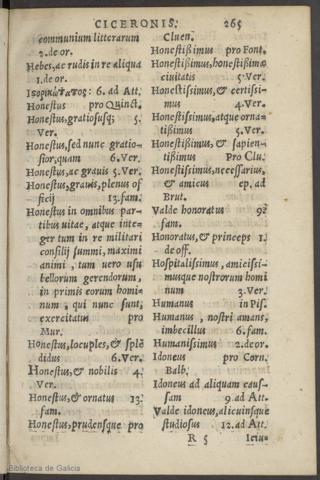 CICERONIS. 265
communium litterarum
2. de or.
Hebes, ac rudis in re aliqua
1. de or.
Honestus pro Quinct.
Honestus, gratiosusq; 5.
Ver.
Honestus, sed nunc gratio-
sior, quam 6. Ver.
Honestus, ac grauis 5. Ver.
Honestus, grauis, plenus of
ficij 13. fam.
Honestus in omnibus par-
tibus uitæ, atque inte-
ger tum in re militari
consilij summi, maximi
animi, tum uero usu
bellorum gerendorum,
in primis eorum homi-
num, qui nunc sunt,
exercitatus pro
Mur.
Honestus, locuples, & splē
didus 6. Ver.
Honestus, & nobilis 4.
Ver.
Honestus, & ornatus 13.
fam.
Honestus, prudensque pro
Cluen.
Honestißimus pro Font.
Honestißimus, honestißimæ
ciuitatis 5. Ver.
Honestissimus, & certissi-
mus 4. Ver.
Honestissimus, atque orna-
tißimus 5. Ver.
Honestißimus, & sapien-
tißimus Pro Clu.
Honestissimus, necessarius,
& amicus ep. ad
Brut.
Valde honoratus 9.
fam.
Honoratus, & princeps 1.
de off.
Hospitalissimus, amicissi-
musque nostrorum homi
num 3. Ver.
Humanus in Pis.
Humanus, nostri amans,
imbecillus 6. fam.
Humanissimus 2. de or.
Idoneus pro Corn.
Balb.
Idoneus ad aliquam caus-
sam 9. ad Att.
Valde idoneus, alicuiusque
studiosus 12. ad Att.
R 5 Iciu-
Biblioteca de Galicia